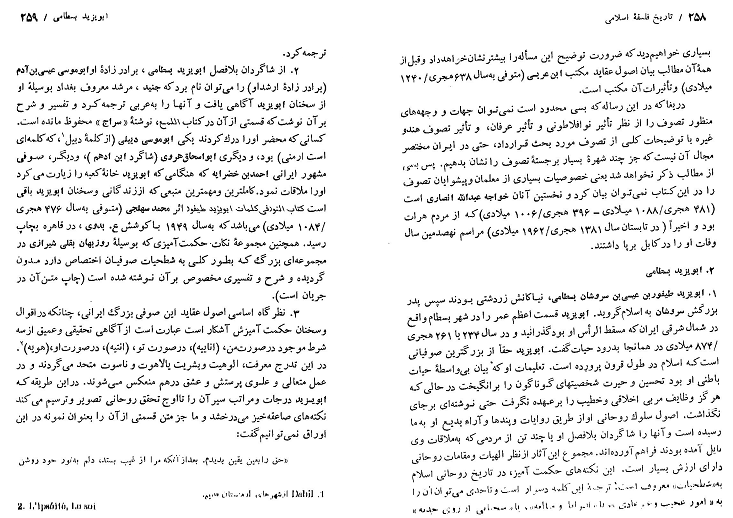 ۲۵۸ / تاریخ فلسفهٔ اسلامی
بسیاری خواهیم دید که ضرورت توضیح این مسأله را بیشتر نشان خواهد داد و قبل از
همهٔ آن مطالب بیان اصول عقاید مکتب ابن عربی (متوفی به سال ۶۳۸ هجری/ ۱۲۴۰
میلادی) و تأثیرات آن مکتب است.
دریغا که در این رساله که بسی محدود است نمی‌توان جهات و وجهه‌های
منظور تصوف را از نظر تأثیر نوافلاطونی و تأثیر عرفان، و تأثیر تصوف هندو
غیره با توضیحات کلی از تصوف مورد بحث قرارداد، حتی در ایران مختصر
مجال آن نیست که جز چند شهرهٔ بسیار برجستهٔ تصوف را نشان بدهیم. پس بسی
از مطالب ذکر نخواهد شد یعنی خصوصیات بسیاری از معلمان و پیشوایان تصوف
را در این کتاب نمی‌توان بیان کرد و نخستین آنان خواجه عبدالله انصاری است
(۴۸۱ هجری/۱۰۸۸ میلادی – ۳۹۶ هجری/۱۰۰۶ میلادی) که از مردم هرات
بود و اخیراً (در تابستان سال ۱۳۸۱ هجری/۱۹۶۲ میلادی) مراسم نهصدمین سال
وفات او را در کابل برپا داشتند.
۲. ابویزید بسطامی
۱. ابویزید طیفور بن عیسی بن سروشان بسطامی، نیاکانش زردشتی بودند سپس پدر
بزرگش سروشان به اسلام گروید. ابویزید قسمت اعظم عمر را در شهر بسطام واقع
در شمال شرقی ایران که مسقط الرأس او بود گذرانید و در سال ۲۳۴ یا ۲۶۱ هجری
/۸۷۴ میلادی در همانجا بدرود حیات گفت. ابویزید حقاً از بزرگترین صوفیانی
است که اسلام در طول قرون پرورده است. تعلیمات او که بیان بی‌واسطهٔ حیات
باطنی او بود تحسین و حیرت شخصیتهای گوناگون را برانگیخت در حالی که
هرگز وظایف مربی اخلاقی وخطیب را برعهده نگرفت حتی نوشته‌ای برجای
نگذاشت. اصول سلوک روحانی او از طریق روایات وپندها وآراء بدیع او به ما
رسیده است و آنها را شاگردان بلافصل او یا چند تن از مردمی که به ملاقات وی
نایل آمده بودند فراهم آورده‌اند. مجموع این آثار از نظر الهیات و مقامات روحانی
دارای ارزش بسیار است. این نکته‌های حکمت آمیز، در تاریخ روحانی اسلام
به «شطحیات» معروف است؛ ترجمهٔ این کلمه دشوار است و تاحدی می‌توان آن را
ابویزید بسطامی / ۲۵۹
ترجمه کرد.
۲. از شاگردان بلافصل ابویزید بسطامی، برادر زادهٔ او ابوموسی عیسی بن آدم
(برادر زادهٔ ارشد او) را می‌توان نام برد که جنید، مرشد معروف بغداد بوسیلهٔ او
از سخنان ابویزید آگاهی یافت و آنها را به عربی ترجمه کرد و تفسیر و شرح
بر آن نوشت که قسمتی از آن در کتاب اللمع، نوشتهٔ «سراج» محفوظ مانده است.
کسانی که محضر اورا درک کردند یکی ابوموسی دبیلی (از کلمهٔ دبیل۱، که کلمه‌ای
است ارمنی) بود، و دیگری ابواسحاق هروی (شاگرد ابن ادهم)، ودیگر، صوفی
مشهور ایرانی احمد بن خضرایه که هنگامی که ابویزید خانهٔ کعبه را زیارت می‌کرد
اورا ملاقات نمود. کاملترین ومهمترین منبعی که از زندگانی وسخنان ابویزید باقی
است کتاب النور فی کلمات ابویزید طیفور اثر محمد سهلجی (متوفی به سال ۴۷۶ هجری
/۱۰۸۴ میلادی) می‌باشد که به سال ۱۹۴۹ با کوشش ع. بدوی، در قاهره بچاپ
رسید. همچنین مجموعهٔ نکات حکمت‌آمیزی که بوسیلهٔ روزبهان بقلی شیرازی در
مجموعه‌ای بزرگ که بطور کلی به شطحیات صوفیان اختصاص دارد مدون
گردیده و شرح و تفسیری مخصوص بر آن نوشته شده است (چاپ متن آن در
جریان است).
۳. نظرگاه اساسی اصول عقاید این صوفی بزرگ ایرانی، چنانکه در اقوال
وسخنان حکمت آمیزش آشکار است عبارت است از آگاهی تحقیقی وعمیق از سه
شرط موجود در صورت من، (انانیه)، در صورت تو، (انتیه)، در صورت او، (هویه)۲.
در این تدرج معرفت، الوهیت وبشریت یالاهوت و ناسوت متحد می‌گردند و در
عمل متعالی و علوی پرستش و عشق درهم منعکس می‌شوند. در این طریقه که
ابویزید درجات و مراتب سیر آن را تا اوج تحقق روحانی تصویر و ترسیم می‌کند
نکته‌های صاعقه‌خیز می‌درخشد و ما جز متن قسمتی از آن را بعنوان نمونه در این
اوراق نمی‌توانیم گفت:
«حق را بعین یقین بدیدم. بعد از آنکه مرا از غیب بستد، دلم به نور خود روشن
1. Dabil از شهرهای ارمنستان قدیم.
2. L'ipséité, Lu soi